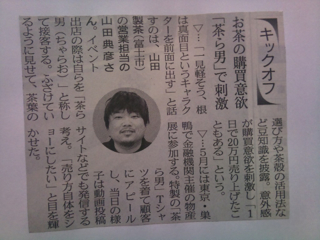 キックオフ
お茶の購買意欲
「茶ら男」で刺激
▽…「一見軽そう、根
は真面目というキャラク
ターを前面に出す」と話
すのは、山田
製茶(富士市)
の営業担当の
山田典彦さ
ん。イベント
出店の際は自らを「茶ら
男(ちゃらお)」と称し
て接客する。ふざけてい
るように見せて、茶葉の
選び方や茶殻の活用法な
ど豆知識を披露。意外感
が購買意欲を刺激し「1
日で20万円売り上げたこ
ともある」という。
▽…5月には東京・巣
鴨で金融機関主催の物産
展に参加する。特製の「茶
ら男」Tシャ
ツを着て顧客
にアピール
し、当日の様
子は動画投稿
サイトなどでも発信する
考え。「売り方自体をシ
ョーにしたい」と目を輝
かせた。